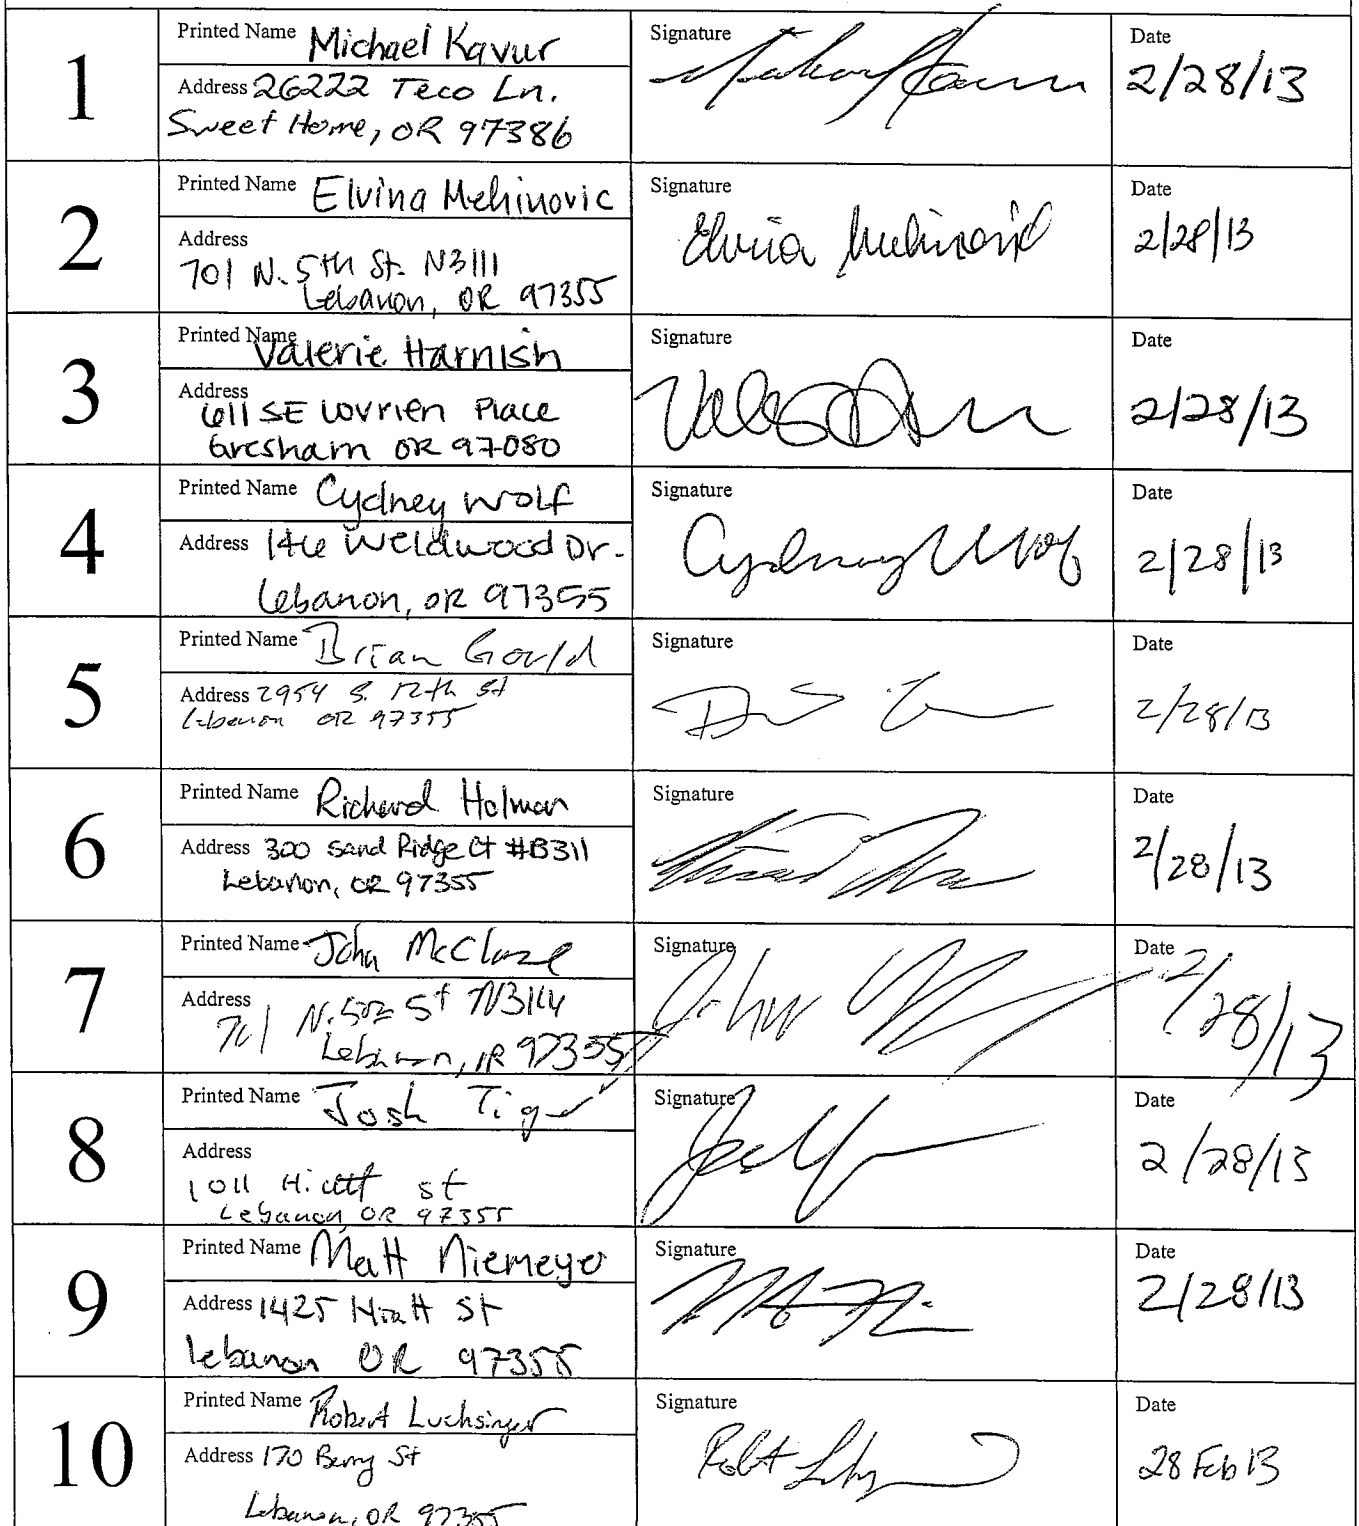 1
Printed Name Michael Kavur
Address 26222 Teco Ln.
Sweet Home, OR 97386
Signature
Date
2/28/13
2
Printed Name Elvina Mehinovic
Address
701 N. 5th St. N3111
Lebanon, OR 97355
Signature Elvina Mehinovic
Date
2/28/13
3
Printed Name Valerie Harnish
Address
611 SE Lovrien Place
Gresham OR 97080
Signature
Date
2/28/13
4
Printed Name Cydney Wolf
Address 146 Weldwood Dr.
Lebanon, OR 97355
Signature Cydney Wolf
Date
2/28/13
5
Printed Name Brian Gould
Address 2954 S. 12th St
Lebanon OR 97355
Signature
Date
2/28/13
6
Printed Name Richard Holman
Address 300 Sand Ridge Ct #B311
Lebanon, OR 97355
Signature
Date
2/28/13
7
Printed Name John McClaze
Address
701 N. 5th St N3114
Lebanon, OR 97355
Signature John
Date 2/28/13
8
Printed Name Josh Tiger
Address
1011 Hiatt st
Lebanon OR 97355
Signature
Date
2/28/13
9
Printed Name Matt Niemeyer
Address 1425 Hiatt St
Lebanon OR 97355
Signature
Date
2/28/13
10
Printed Name Robert Luchsinger
Address 170 Berry St
Lebanon, OR 97355
Signature
Date
28 Feb 13